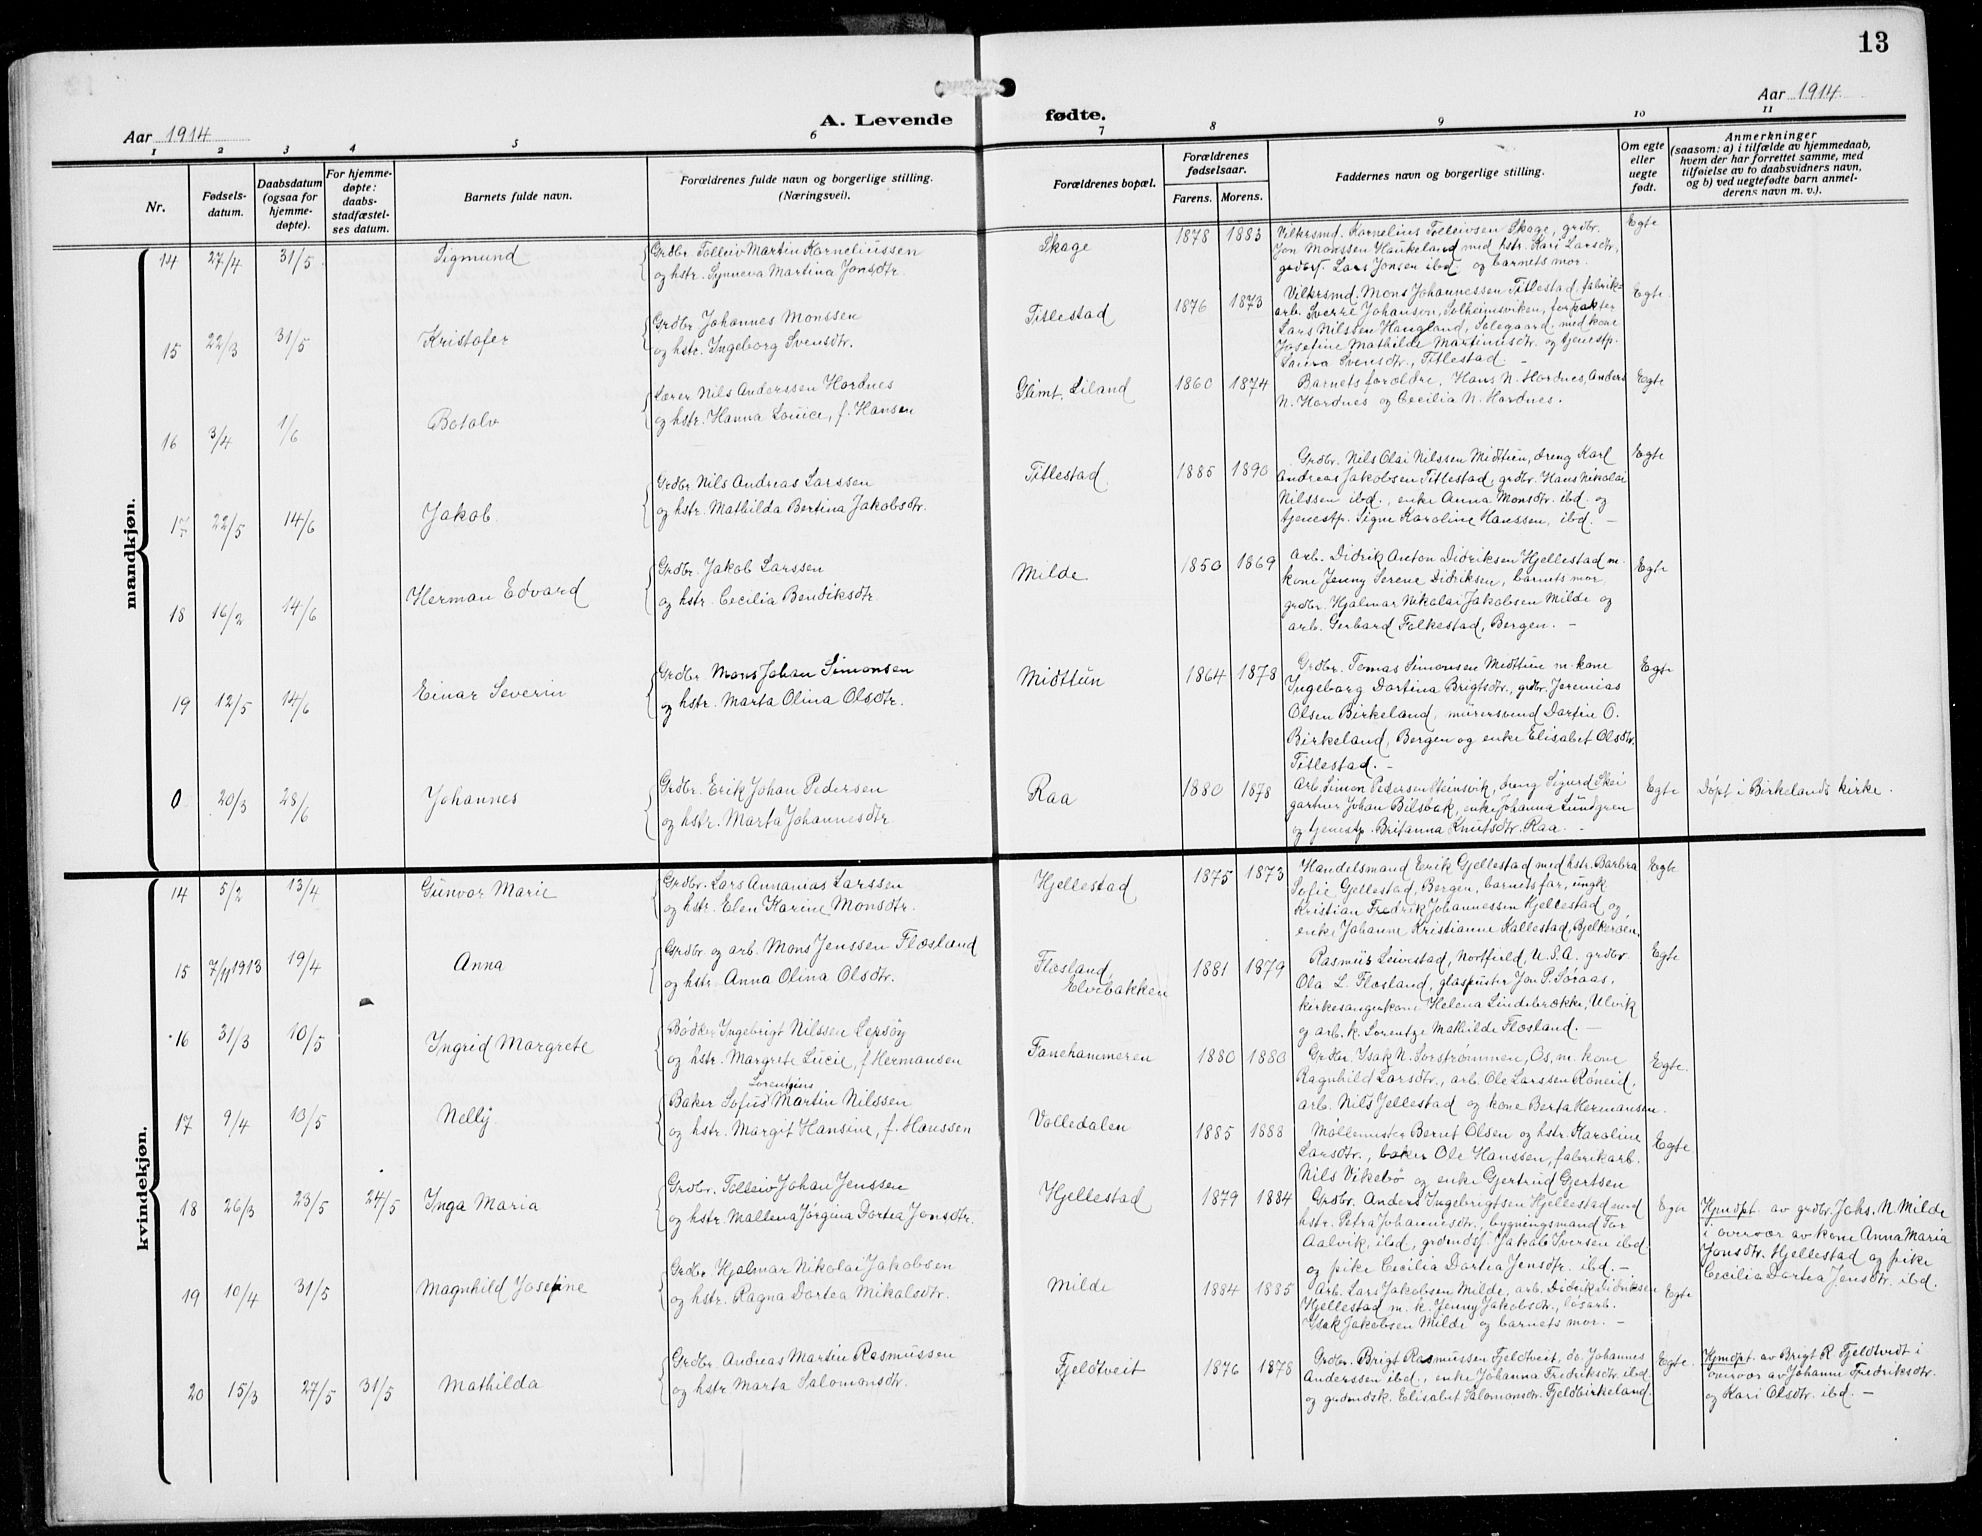 13
Aar 1914
A. Levende fødte.
Aar 1914.
1 2 3 4 5 6 7 8 9 10 11
Nr.
Fødsels-
datum.
Daabsdatum
(ogsaa for
hjemme-
døpte).
For hjemme-
døpte:
daabs-
stadfæstel-
ses datum.
Barnets fulde navn.
Forældrenes fulde navn og borgerlige stilling.
(Næringsvei).
Forældrenes bopæl.
Forældrenes
fødselsaar.
Farens. Morens.
Faddernes navn og borgerlige stilling.
Om egte
eller
uegte
født.
Anmerkninger
(saasom: a) i tilfælde av hjemmedaab,
hvem der har forrettet samme, med
tilføielse av to daabsvidners navn,
og b) ved uegtefødte barn anmel-
derens navn m. v.).
mandkjøn.
14 27/4 31/5 Sigmund
Grdbr. Tolleiv Martin Korneliussen
og hstr. Synneva Martina Jonsdtr.
Skage 1878 1883
Vilkrsmd. Kornelius Tolleivsen Skage, grdbr.
Jon Monssen Haukeland med hstr. Kari Larsdtr.,
grdbrs. Lars Jonsen ibd. og barnets mor.
Egte
15 22/3 31/5 Kristofer
Grdbr. Johannes Monssen
og hstr. Ingeborg Svensdtr.
Titlestad 1876 1873
Vilkrsmd. Mons Johannessen Titlestad, fabrik-
arb. Sverre Johanson, Solheimsviken, forpakter
Lars Nilssen Haugland, Solegaard, med kone
Josefine Mathilde Martinusdtr. og tjenestp.
Laura Svensdtr., Titlestad. –
Egte
16 3/4 1/6 Botolv
Lærer Nils Anderssen Hordnes
og hstr. Hanna Louice, f. Hansen
Glimt, Liland 1860 1874
Barnets forældre, Hans N. Hordnes, Anders
N. Hordnes og Cecilia N. Hordnes.
Egte
17 22/5 14/6 Jakob
Grdbr. Nils Andreas Larssen
og hstr. Mathilda Bertina Jakobsdtr.
Titlestad 1885 1890
Grdbr. Nils Olai Nilssen Midttun, dreng Karl
Andreas Jakobsen Titlestad, grdbr. Hans Nikolai
Nilssen ibd., enke Anna Monsdtr. ibd. og
tjenestp. Signe Karoline Hanssen, ibd. –
Egte
18 16/2 14/6 Herman Edvard
Grdbr. Jakob Larssen
og hstr. Cecilia Bendiksdtr.
Milde 1850 1869
Arb. Didrik Anton Didriksen Hjellestad m.
kone Jenny Serene Didriksen, barnets mor,
grdbr. Hjalmar Nikolai Jakobsen Milde og
arb. Gerhard Folkestad, Bergen. –
Egte
19 12/5 14/6 Einar Severin
Grdbr. Mons Johan Simonsen
og hstr. Marta Olina Olsdtr.
Midttun 1864 1878
Grdbr. Tomas Simonsen Midttun m. kone
Ingeborg Dortina Brigtsdtr., grdbr. Jeremias
Olsen Birkeland, murersvend Dortin O.
Birkeland, Bergen og enke Elisabet Olsdtr.
Titlestad. –
Egte
0 20/3 28/6 Johannes
Grdbr. Erik Johan Pedersen
og hstr. Marta Johannesdtr.
Raa 1880 1878
Arb. Simon Pedersen Steinsvik, dreng Sigurd Skei
gartner Johan Bilsbak, enke Johanna Lundgren
og tjenestp. Britanna Knutsdtr. Raa. –
Egte
Døpt i Birkelands kirke.
kvindekjøn.
14 5/2 13/4 Gunvor Marie
Grdbr. Lars Annanias Larssen
og hstr. Elen Karine Monsdtr.
Hjellestad 1875 1873
Handelsmand Erik Gjellestad med hstr. Barbra
Sofie Gjellestad, Bergen, barnets far, ungk
Kristian Fredrik Johannessen Hjellestad og
enke Johanne Kristianne Kallestad, Bjelkerøen.
Egte
15 7/11 1913 19/4 Anna
Grdbr og arb. Mons Jenssen Flæsland
og hstr. Anna Olina Olsdtr.
Flæsland,
Elvebakken 1881 1879
Rasmus Leivestad, Nortfield, U.S.A. grdbr
Ola L. Flæsland, glaspuster Jon P. Søraas,
kirkesangerkone Helena Lindebrække, Ulvik
og arb. k. Lorentze Mathilde Flæsland. –
Egte
16 31/3 10/5 Ingrid Margrete
Bødker Ingebrigt Nilssen Lepsøy
og hstr. Margrete Lucie, f Hermansen
Fanehammeren 1880 1880
Grdbr. Isak N. Sørstrømmen, Os, m. kone
Ragnhild Larsdtr., arb. Ole Larssen Røneid,
arb. Nils Jellestad og kone Berta Hermansen.
Egte.
17 9/4 10/5 Nelly
Lorentzius
Baker Sofus Martin Nilssen
og hstr. Margit Hansine, f. Hanssen
Volledalen 1885 1888
Møllemester Bernt Olsen og hstr. Karoline
Larsdtr., baker Ole Hanssen, fabrikarb.
Nils Vikebø og enke Gjertrud Gjertsen
Egte
18 26/3 23/5 24/5 Inga Maria
Grdbr. Tolleiv Johan Jenssen
og hstr. Mallena Jørgina Dortea Jonsdtr.
Hjellestad 1879 1884
Grdbr. Anders Ingebrigtsen Hjellestad med
hstr. Petra Johannesdtr., bygningsmand Tor
Aalvik, ibd, grdmdsf Jakob Iversen ibd
og pike Cecilia Dortea Jensdtr. ibd. –
Egte
Hjmdpt. av grdbr. Johs. N. Milde
i overvær av kone Anna Maria
Jonsdtr. Hjellestad og pike
Cecilia Dortea Jensdtr. ibd.
19 10/4 31/5 Magnhild Josefine
Grdbr. Hjalmar Nikolai Jakobsen
og hstr. Ragna Dortea Mikalsdtr.
Milde 1884 1885
Arb. Lars Jakobsen Milde, arb. Didrik Didriksen
Hjellestad m. k. Jenny Jakobsdtr., løsarb.
Isak Jakobsen Milde og barnets mor. –
Egte
20 15/3 27/5 31/5 Mathilda
Grdbr. Andreas Martin Rasmussen
og hstr Marta Salomonsdtr.
Fjeldtveit 1876 1878
Grdbr. Brigt Rasmussen Fjeldtveit, do. Johannes
Anderssen ibd., enke Johanna Fredriksdtr. ibd
og grdmdsk. Elisabet Salomonsdtr. Fjeldbirkeland.
Egte.
Hjmdpt. av Brigt R Fjeldtvedt i
overvær av Johanne Fredriksdtr.
og Kari Olsdtr. ibd. –